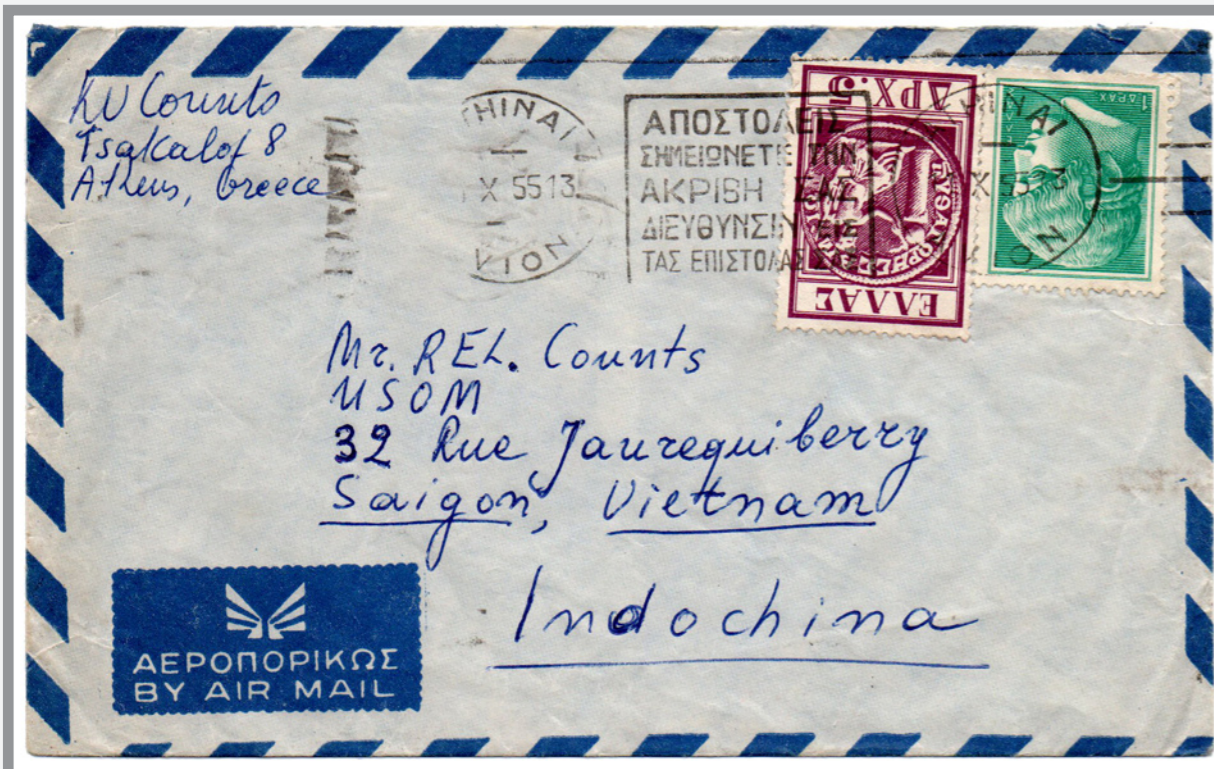 KV Counts
Tsakalof 8
Athens, Greece
THINAI
X 5513
VION
ΑΠΟΣΤΟΛΕΙΣ
ΣΗΜΕΙΩΝΕΤΕ ΤΗΝ
ΑΚΡΙΒΗ ΣΑΣ
ΔΙΕΥΘΥΝΣΙΝ ΕΙΣ
ΤΑΣ ΕΠΙΣΤΟΛΑΣ ΣΑΣ
ΔΡΧ.5
ΕΛΛΑΣ
1 ΔΡΑΧ
HINAI
X 55 13
ION
Mr. REL. Counts
USOM
32 Rue Jaurequiberry
Saigon, Vietnam
Indochina
ΑΕΡΟΠΟΡΙΚΩΣ
BY AIR MAIL